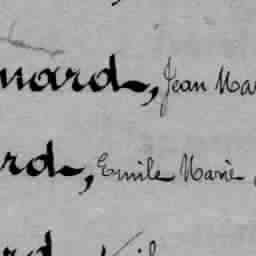 nard, Jean Mar
rd, Emile Marie
rd